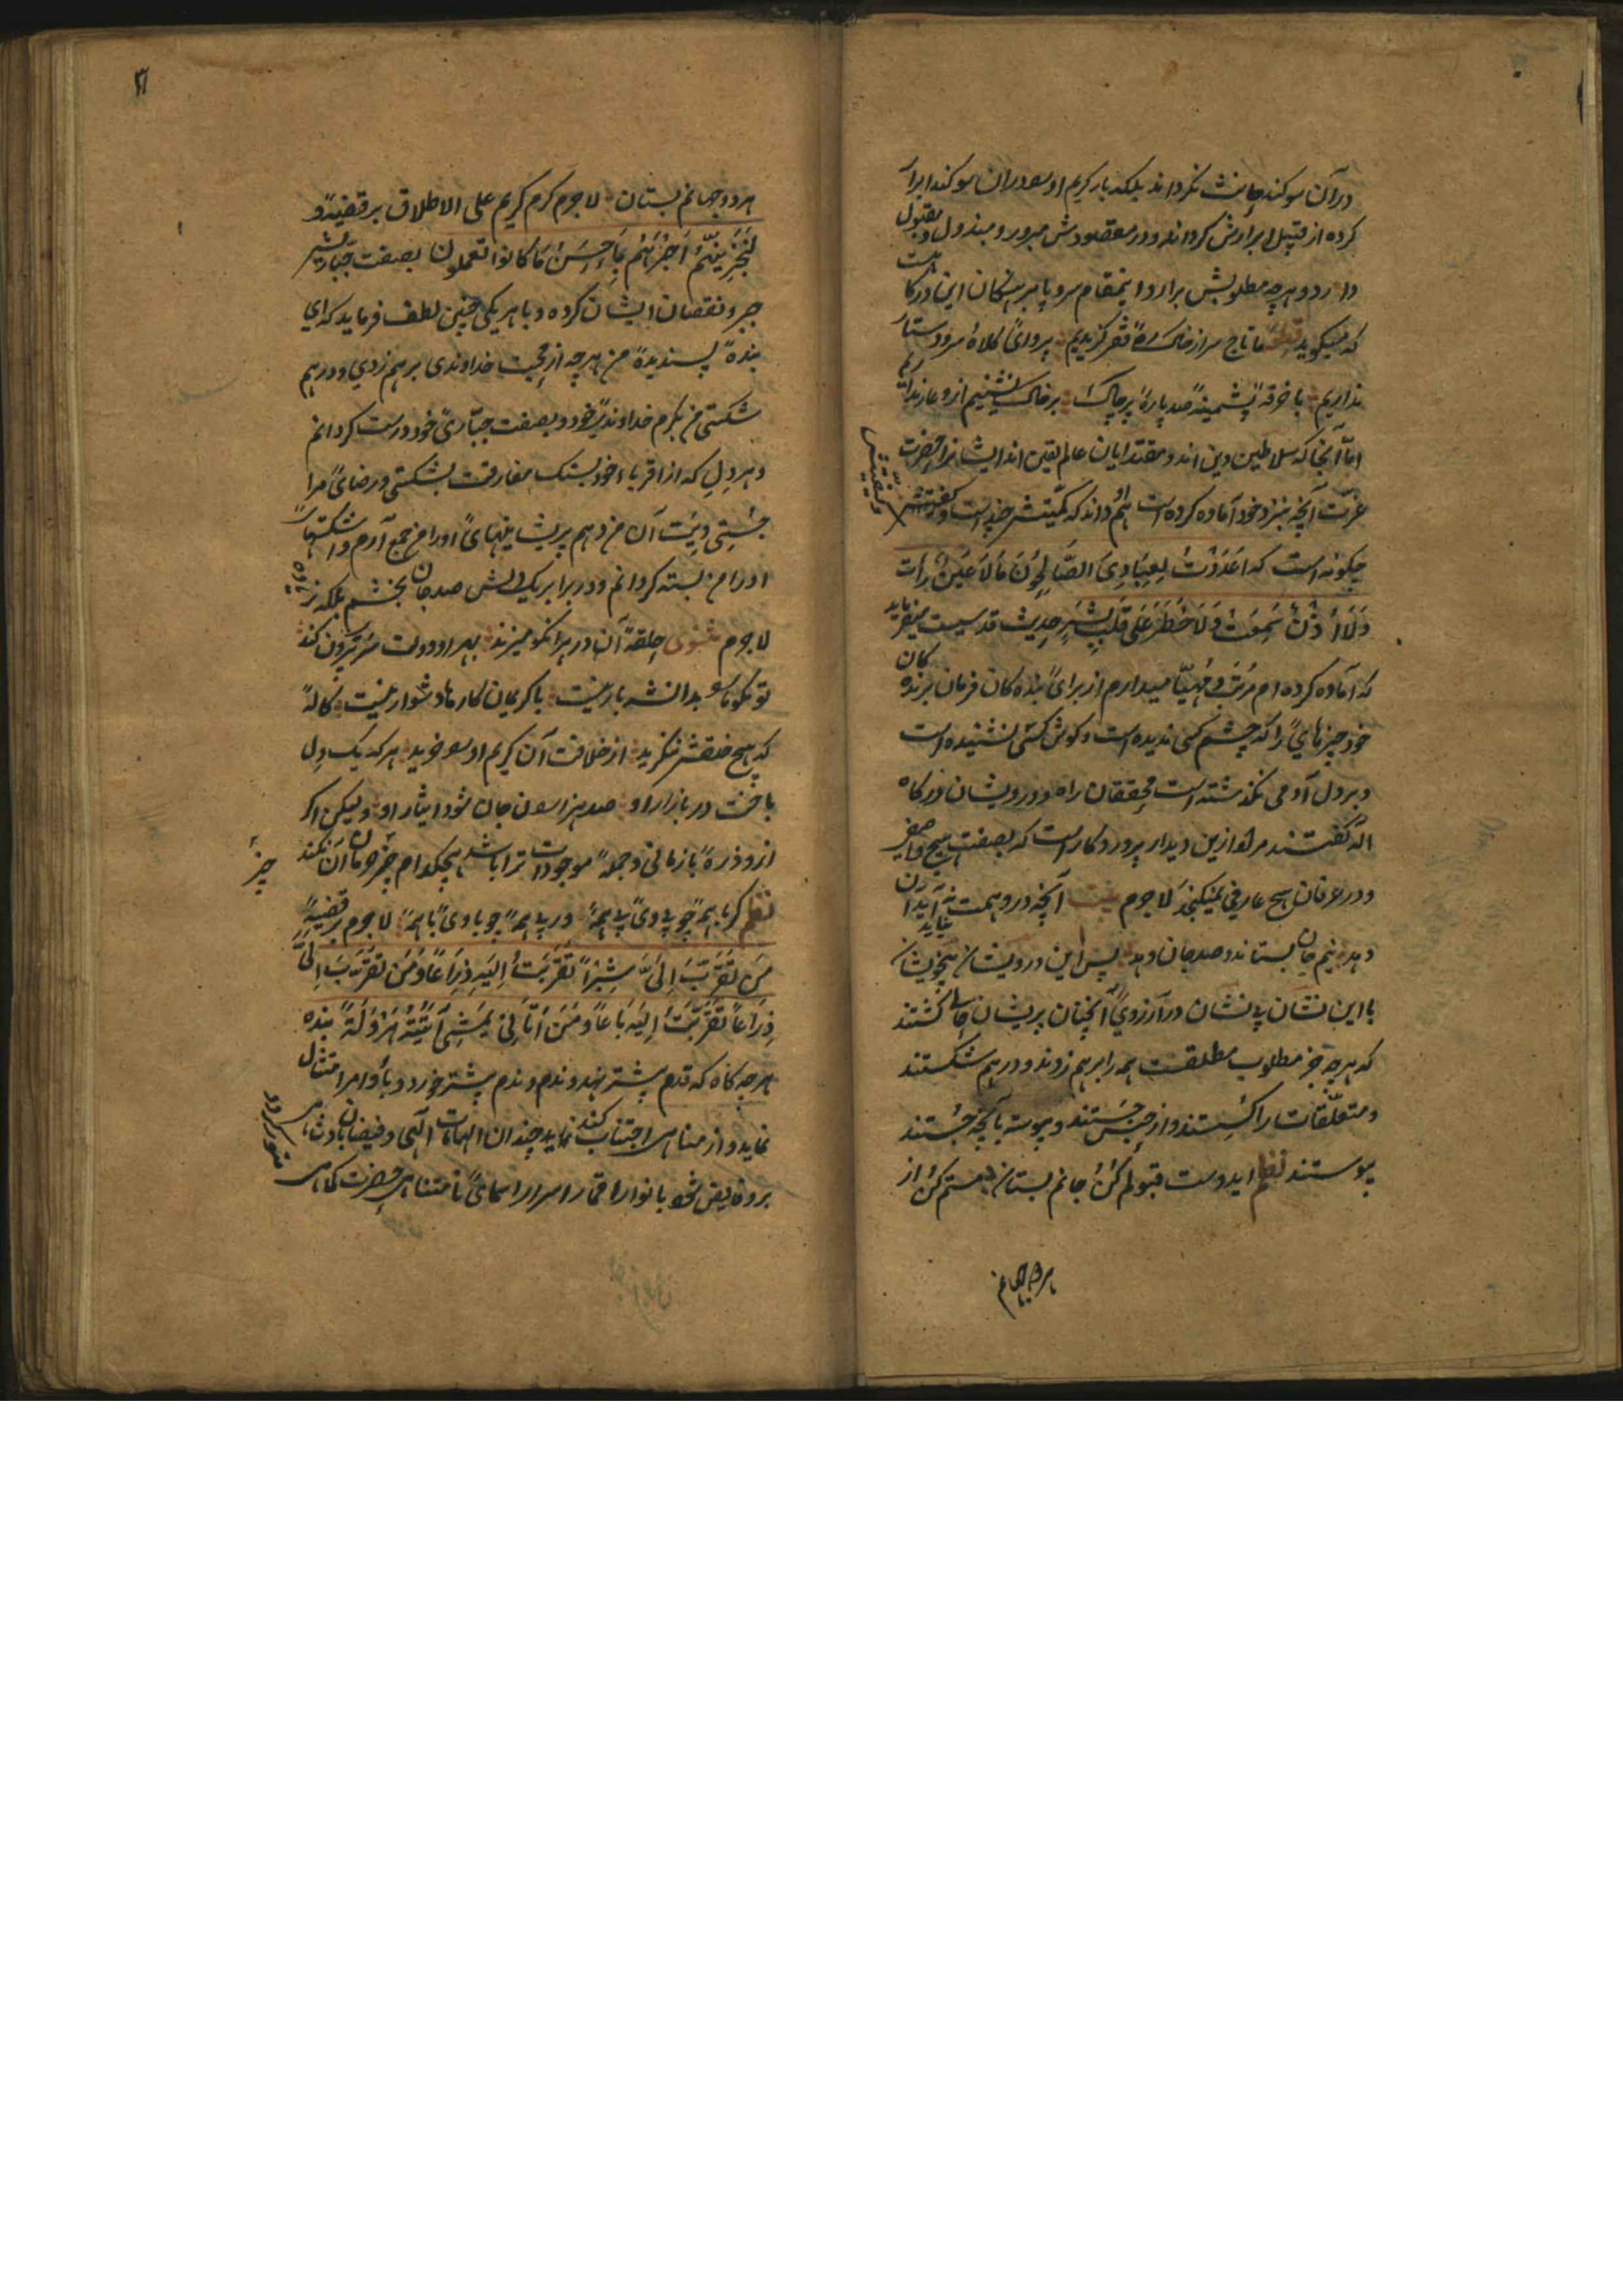 در آن سوکند حانث نکرداند بلکه بار کریم او سو در ان سوکند ابرار
کرده از قبیل ابرارش کرداند و در مقصودش مبرور و مبذول و مقبول
دارد و هرچه مطلوبش برارد اینمقام سر و پا برهنکان این درکاهست
که میکوید قطعه ما تاج سر از خاک ره فقر کزیدیم پروای کلاه سر و دستار
نداریم با خرقه پشمینه صد پاره پر چاک بر خاک نشینیم از و عار نداریم
امّا آنجا که سلاطین دین اند و مقتدایان عالم یقین اند ایشانرا حضرت
عزّت آنچه بنزد خود آماده کرده است هم او داند که کمیّتش چنداست و کیفیتش
چکونه است که اَعْدَدْتُ لِعِبَادِیَ الصَّالِحُونَ مَا لَا عَیْنٌ رَأَتْ
وَلَا اُذُنٌ سَمِعَتْ وَلَا خَطَرَ عَلَی قَلْبِ بَشَرٍ حدیث قدسیست میفرماید
که آماده کرده ام مرتب و مهیّا میدارم از برای بنده کان فرمان برنده کان
خود چیزهایی را که چشم کسی ندیده است و کوش کسی نشنیده است
و بر دل آدمی نکذشته است محققان راه و درویشان درکاه
اله کفتند مراد ازین دیدار پرورد کار است که بصفت هیچ واصفی
و در عرفان هیچ عارفی نمیکنجد لاجرم بیت آنچه در وهمت نیاید آن
دهد نیم جان بستاند و صد جان دهد پس این درویشان بیخویشان
با این نشان بی نشان در آرزوی آنچنان پریشان حالی کشتند
که هرچه جز مطلوب مطلقست همه را برهم زدند و درهم شکستند
و متعلّقات را کسستند و از حبس جستند و پیوسته با آنچه جستند
پیوستند نظم ایدوست قبولم کن و جانم بستان مستم کن و از
هر دو جهانم
۳۱
هر دو جهانم بستان لاجرم کرم کریم علی الاطلاق بر قضیّه و
لَنَجْزِیَنَّهُمْ اَجْرَهُمْ بِاَحْسَنِ مَا کَانُوا تعملون بصفت جبّاریش
جبر و نقصان ایشان کرده و با هر یکی چنین لطف فرماید که ای
بنده پسندیده من هرچه از محبت خداوندی بر هم زدی و درهم
شکستی من بکرم خداوندی خود و بصفت جبّاری خود درست کردانم
و هر دل که از اقرباء خود بسنک مفارقت بشکستی و رضای مرا
جستی دیت آن من دهم پریشانیهای او را من جمع آرم و اشکستهای
او را من بسته کردانم و در برابر یک دلش صد جان بخشم بلکه زیاده
لاجرم مثنوی حلقه آن در هر انکو میزند بهر او دولت سر بیرون کند
تو مکو ما را بدانشه بار نیست با کریمان کارها دشوار نیست کاله
که هیچ خلقش ننکرید از خلاقت آن کریم او سو خرید هر که یک دل
باخت در بازار او صد هزاران جان شود ایثار او ولیکن اکر
از و ذره بازمانی و جمله موجودات ترا باشد هیچکدام جبر حرمان آن نکند
نظم کر با همه چو بی وی بی همه ور بی همه چو با وی با همه لاجرم بر قضیه
مَن تَقَرَّبَ اِلَیَّ شِبْرًا تَقَرَّبْتُ اِلَیهِ ذِرَاعًا وَمَن تَقَرَّبَ اِلَیَّ
ذِرَاعًا تَقَرَّبْتُ اِلَیهِ بَاعًا وَمَنْ اَتَانِی یَمْشِی اَتَیْتُهُ هَرْوَلَةً بنده
هرچه کاه که قدم پیشتر نهد و ندم و ندم پیشتر خورد و باوامر امتثال
نماید و از مناهی اجتناب کند نماید چندان الهامات الهی و فیضان
برو فایض شود با نوار اقمار اسرار اسمای نامتناهی حضرت کماهی